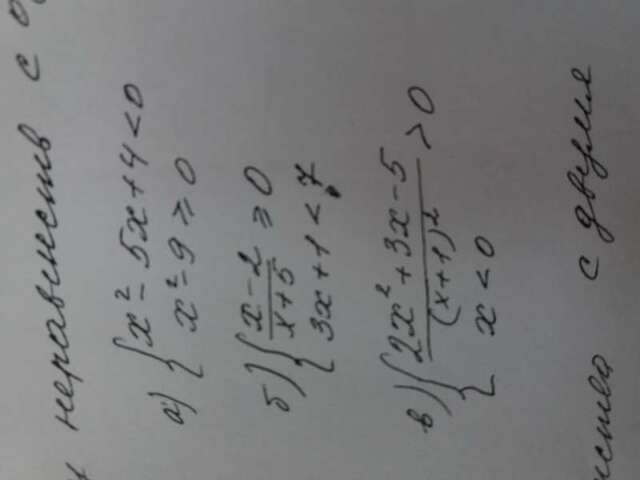 неравенств с
а) { x² - 5x + 4 < 0
x² - 9 ≥ 0
б) { (x - 2)/(x + 5) ≥ 0
3x + 1 < 7
в) { (2x² + 3x - 5)/(x + 1)² > 0
x < 0
с двумя